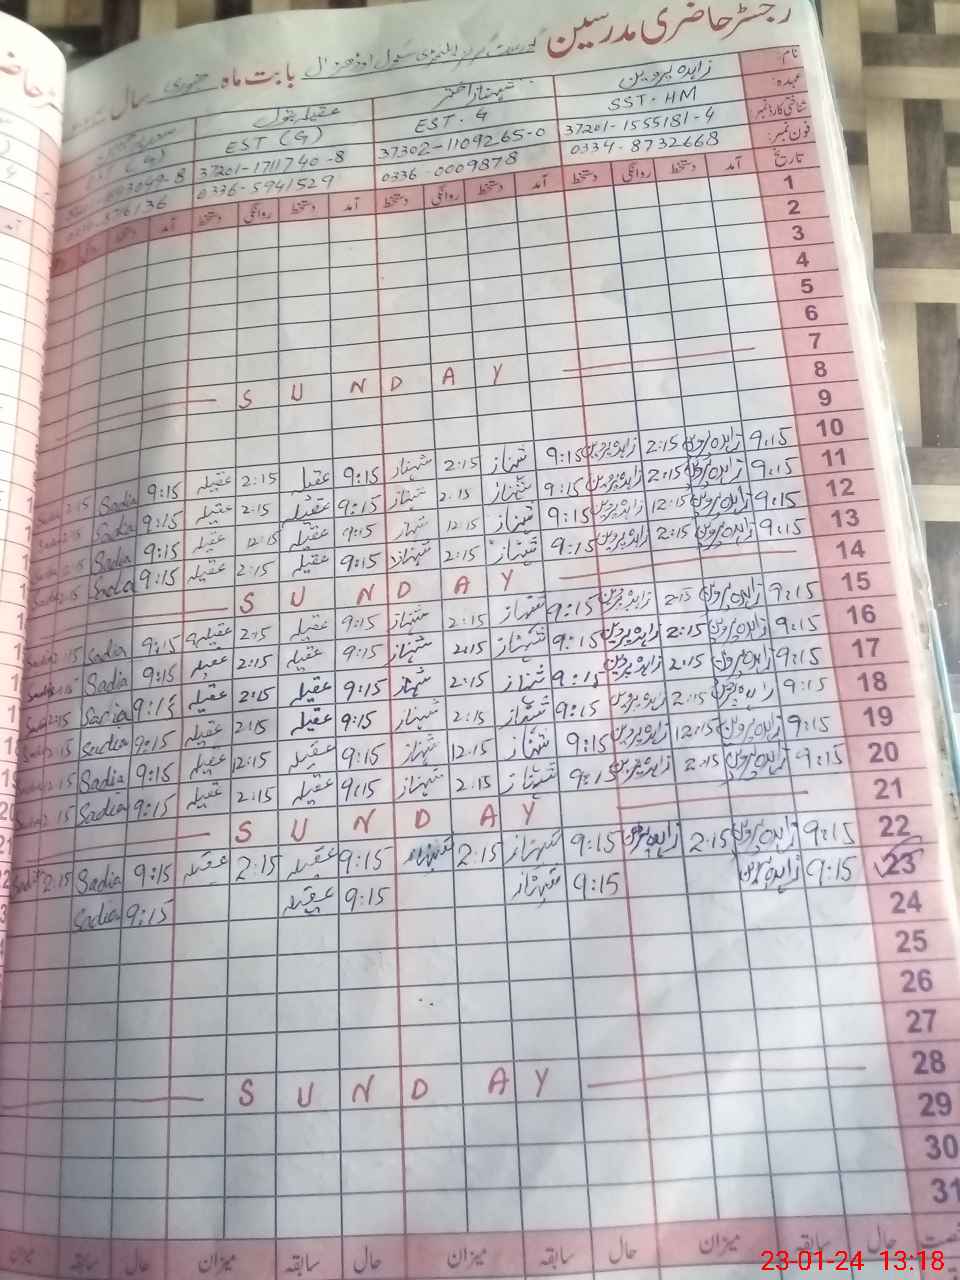 رجسٹر حاضری مدرسین
بابت ماہ جنوری سال
نام: زاہدہ پروین شہناز اختر عقیلہ بتول
عہدہ: SST-HM EST. G EST (G)
شناختی کارڈ نمبر 37201-1555181-4 37302-1109265-0 37201-1711740-8
فون نمبر: 0334-8732668 0336-0009878 0336-5941529
تاریخ آمد دستخط روانگی دستخط آمد دستخط روانگی دستخط آمد دستخط روانگی دستخط آمد
1
2
3
4
5
6
7 S U N D A Y
8
9
10 9:15 زاہدہ پروین 2:15 زاہدہ پروین 9:15 شہناز 2:15 شہناز 9:15 عقیلہ 2:15 عقیلہ 9:15 Sadia 2:15
11 9:15 زاہدہ پروین 2:15 زاہدہ پروین 9:15 شہناز 2:15 شہناز 9:15 عقیلہ 2:15 عقیلہ 9:15 Sadia
12 9:15 زاہدہ پروین 12:15 زاہدہ پروین 9:15 شہناز 12:15 شہناز 9:15 عقیلہ 12:15 عقیلہ 9:15 Sadia
13 9:15 زاہدہ پروین 2:15 زاہدہ پروین 9:15 شہناز 2:15 شہناز 9:15 عقیلہ 2:15 عقیلہ 9:15 Sadia
14 S U N D A Y
15 9:15 زاہدہ پروین 2:15 زاہدہ پروین 9:15 شہناز 2:15 شہناز 9:15 عقیلہ 2:15 عقیلہ 9:15 Sadia
16 9:15 زاہدہ پروین 2:15 زاہدہ پروین 9:15 شہناز 2:15 شہناز 9:15 عقیلہ 2:15 عقیلہ 9:15 Sadia
17 9:15 زاہدہ پروین 2:15 زاہدہ پروین 9:15 شہناز 2:15 شہناز 9:15 عقیلہ 2:15 عقیلہ 9:15 Sadia 2:15
18 9:15 زاہدہ پروین 2:15 زاہدہ پروین 9:15 شہناز 2:15 شہناز 9:15 عقیلہ 2:15 عقیلہ 9:15 Sadia
19 9:15 زاہدہ پروین 12:15 زاہدہ پروین 9:15 شہناز 12:15 شہناز 9:15 عقیلہ 12:15 عقیلہ 9:15 Sadia
20 9:15 زاہدہ پروین 2:15 زاہدہ پروین 9:15 شہناز 2:15 شہناز 9:15 عقیلہ 2:15 عقیلہ 9:15 Sadia
21 S U N D A Y
22 9:15 زاہدہ پروین 2:15 زاہدہ پروین 9:15 شہناز 2:15 شہناز 9:15 عقیلہ 2:15 عقیلہ 9:15 Sadia 2:15
23 9:15 زاہدہ پروین 9:15 شہناز 9:15 عقیلہ 9:15 Sadia
24
25
26
27
28 S U N D A Y
29
30
31
حال سابقہ میزان حال سابقہ میزان حال سابقہ میزان حال سابقہ میزان
23-01-24 13:18